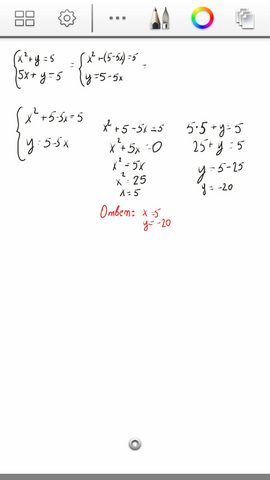 x² + y = 5
5x + y = 5
=
x² + (5-5x) = 5
y = 5-5x
=
x² + 5-5x = 5
y = 5-5x
x² + 5 - 5x = 5
x² + 5x = 0
x² = 5x
x² = 25
x = 5
5·5 + y = 5
25 + y = 5
y = 5-25
y = -20
Ответ: x = 5
y = -20